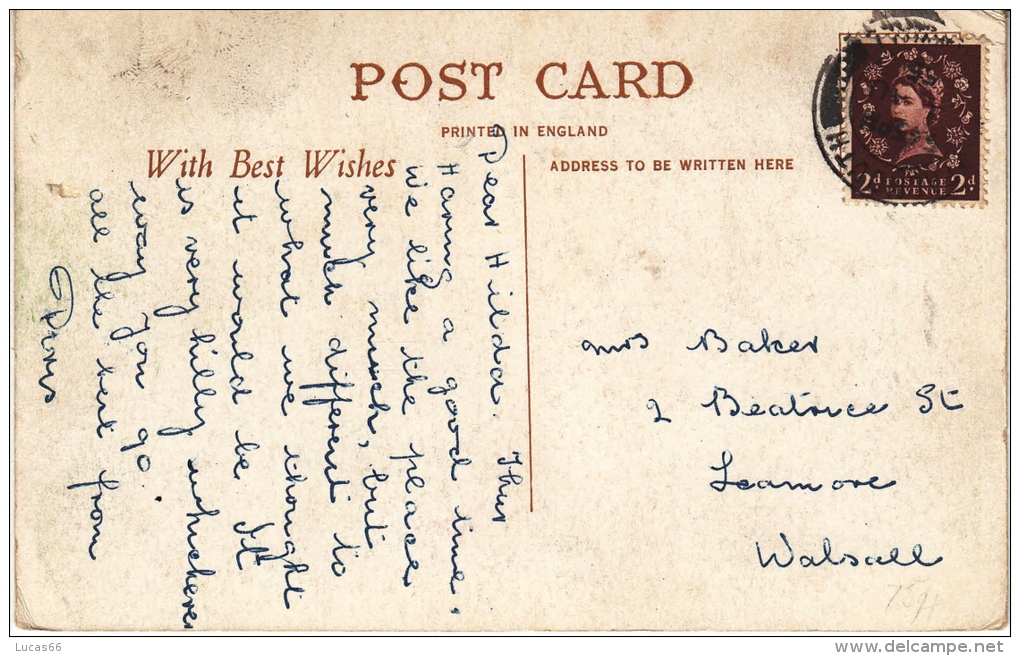 POST CARD
PRINTED IN ENGLAND
With Best Wishes
ADDRESS TO BE WRITTEN HERE
2d POSTAGE 2d
REVENUE
Dear Hilda. Thur
Having a good time.
We like the place
very much, but
much different to
what we thought
it would be. It
is very hilly whichever
way you go.
all the best from
Mrs Baker
2 Beatrice St
Leamore
Walsall
Lucas66
www.delcampe.net